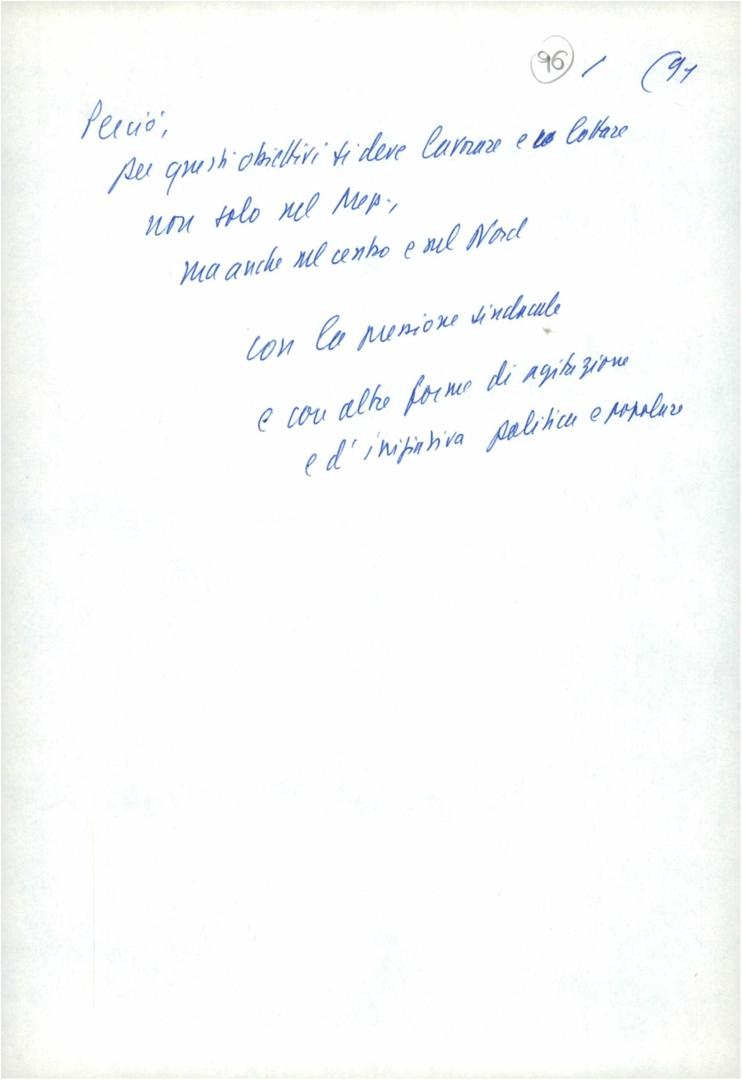 96 / (91
Perciò,
per questi obiettivi si deve lavorare e lottare
non solo nel Mezz.,
ma anche nel centro e nel Nord
con la pressione sindacale
e con altre forme di agitazione
e d'iniziativa politica e popolare